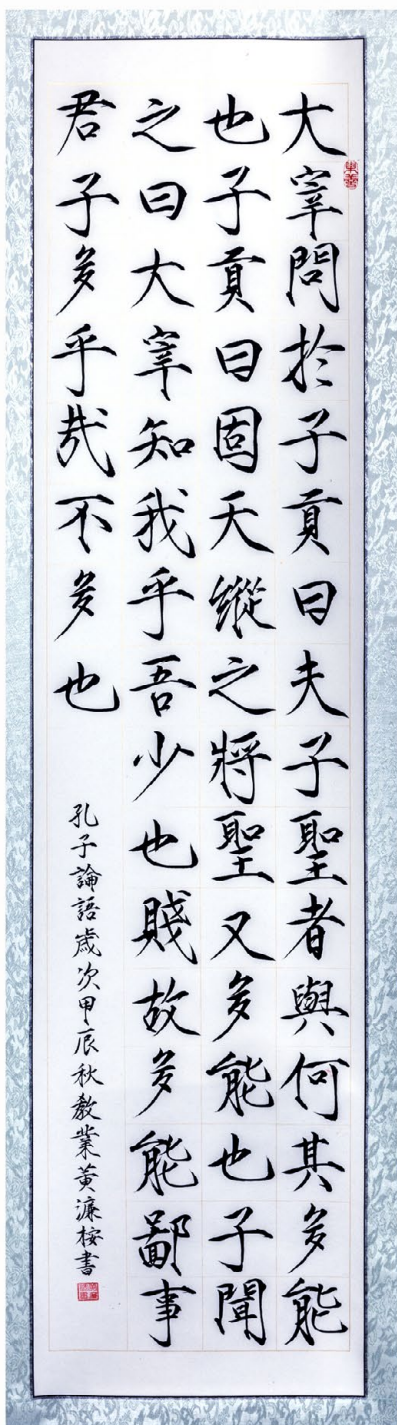 大宰問於子貢曰夫子聖者與何其多能
也子貢曰固天縱之將聖又多能也子聞
之曰大宰知我乎吾少也賤故多能鄙事
君子多乎哉不多也
孔子論語歲次甲辰秋敎業黃濂桉書